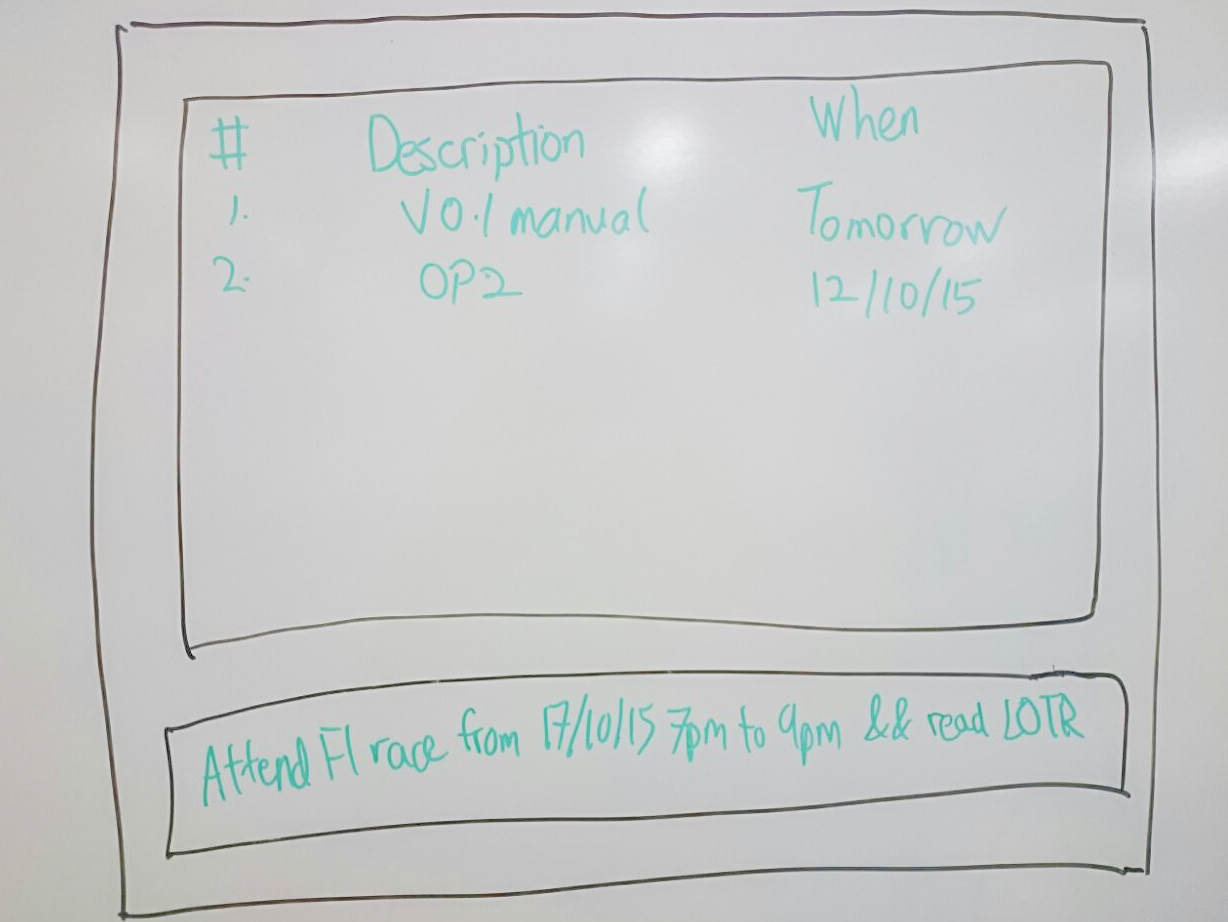 # Description When
1. V0.1 manual Tomorrow
2. OP2 12/10/15
Attend F1 race from 17/10/15 7pm to 9pm && read LOTR